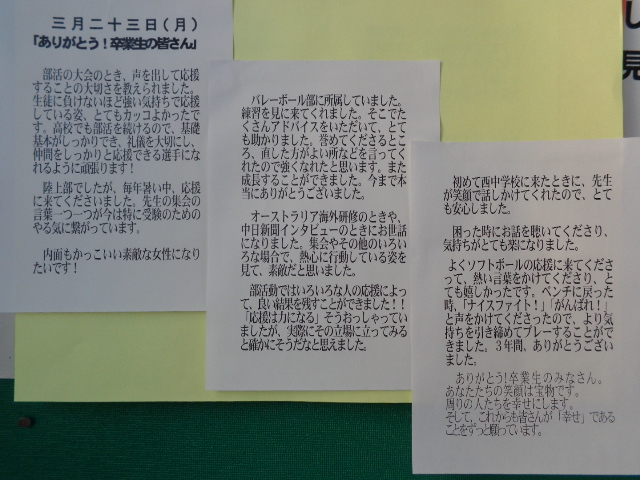 三月二十三日(月)
「ありがとう!卒業生の皆さん」
部活の大会のとき、声を出して応援
することの大切さを教えられました。
生徒に負けないほど強い気持ちで応援
している姿、とてもカッコよかったで
す。高校でも部活を続けるので、基礎
基本がしっかりでき、礼儀を大切にし、
仲間をしっかりと応援できる選手にな
れるように頑張ります!
陸上部でしたが、毎年暑い中、応援
に来てくださいました。先生の集会の
言葉一つ一つが今は特に受験のための
やる気に繋がっています。
内面もかっこいい素敵な女性になり
たいです!
バレーボール部に所属していました。
練習を見に来てくれました。そこでた
くさんアドバイスをいただいて、とて
も助かりました。誉めてくださるとこ
ろ、直した方がよい所などを言ってく
れたので強くなれたと思います。また
成長することができました。今まで本
当にありがとうございました。
オーストラリア海外研修のときや、
中日新聞インタビューのときにお世話
になりました。集会やその他のいろい
ろな場合で、熱心に行動している姿を
見て、素敵だと思いました。
部活動ではいろいろな人の応援によっ
て、良い結果を残すことができました!!
「応援は力になる」そうおっしゃってい
ましたが、実際にその立場に立ってみる
と確かにそうだなと思えました。
初めて西中学校に来たときに、先生
が笑顔で話しかけてくれたので、とて
も安心しました。
困った時にお話を聴いてくださり、
気持ちがとても楽になりました。
よくソフトボールの応援に来てくださ
って、熱い言葉をかけてくださり、と
ても嬉しかったです。ベンチに戻った
時、「ナイスファイト!」「がんばれ!」
と声をかけてくださったので、より気
持ちを引き締めてプレーすることがで
きました。3年間、ありがとうござい
ました。
ありがとう!卒業生のみなさん。
あなたたちの笑顔は宝物です。
周りの人たちを幸せにします。
そして、これからも皆さんが「幸せ」である
ことをずっと願っています。
し
見